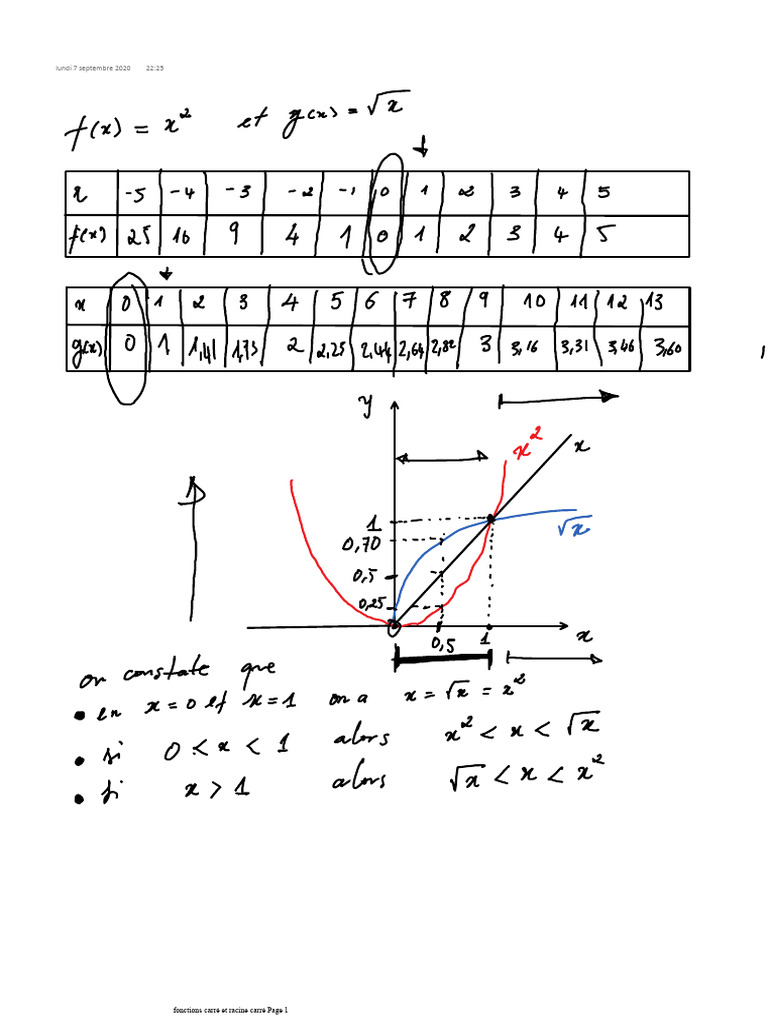 lundi 7 septembre 2020 22:25
f(x) = x² et g(x) = √x
x -5 -4 -3 -2 -1 0 1 2 3 4 5
f(x) 25 16 9 4 1 0 1 2 3 4 5
x 0 1 2 3 4 5 6 7 8 9 10 11 12 13
g(x) 0 1 1,41 1,73 2 2,25 2,44 2,64 2,82 3 3,16 3,31 3,46 3,60
y
x²
x
1
√x
0,70
0,5
0,25
0 0,5 1 x
on constate que
• en x = 0 et x = 1 on a x = √x = x²
• si 0 < x < 1 alors x² < x < √x
• si x > 1 alors √x < x < x²
fonctions carré et racine carré Page 1